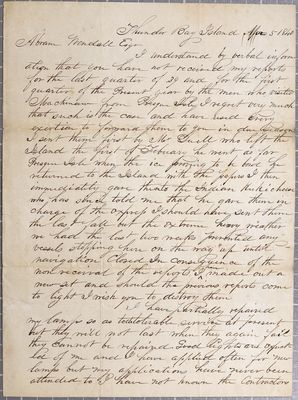 Thunder Bay Island Apr 5 1840
Abram Wendall Esqr
I understand by verbal inform
ation that you have not received my reports
for the last quarter of 39 and for the first
quarter of the present year by the men who visited
Mackinaw from Presque Isle I regret very much
that such is the case and have used every
exertion to forward them to you in due season
I sent them first by Mr who left the
Island the first of he went as far
Presque Isle when the ice proving bad he
returned to the Island with the papers I then
immediately gave them to the Indian
who has since told me that he gave them in
charge of the express I should have sent them
the last fall but the extreme heavy weather
we had the last two weeks prevented any
vessels stopping here on the way up until
navigation closed In consequence of the
non receival of the reports I have made out a
new set and should the previous reports come
to light I wish you to distroy them
I have partially repaired
my lamps so as tolerable service at present
but they will not last when they again fail
they cannot be repaired Good lights are expect
ed of me and I have applied often for new
lamps but my applications have never been
attended to I have not known the Contractors